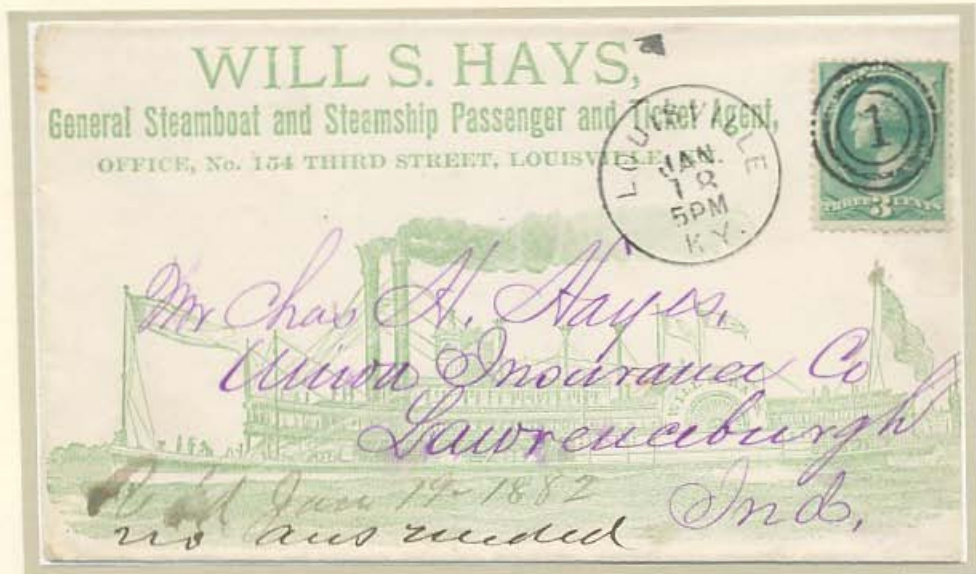 WILL S. HAYS,
General Steamboat and Steamship Passenger and Ticket Agent,
OFFICE, No. 154 THIRD STREET, LOUISVILLE,
LOUISVILLE
JAN.
18
5PM
KY.
1
THREE 3 CENTS
Mr Chas H. Hayes,
Union Insurance Co
Lawrenceburgh
Ind.
Rec'd Jan 19- 1882
no ans needed